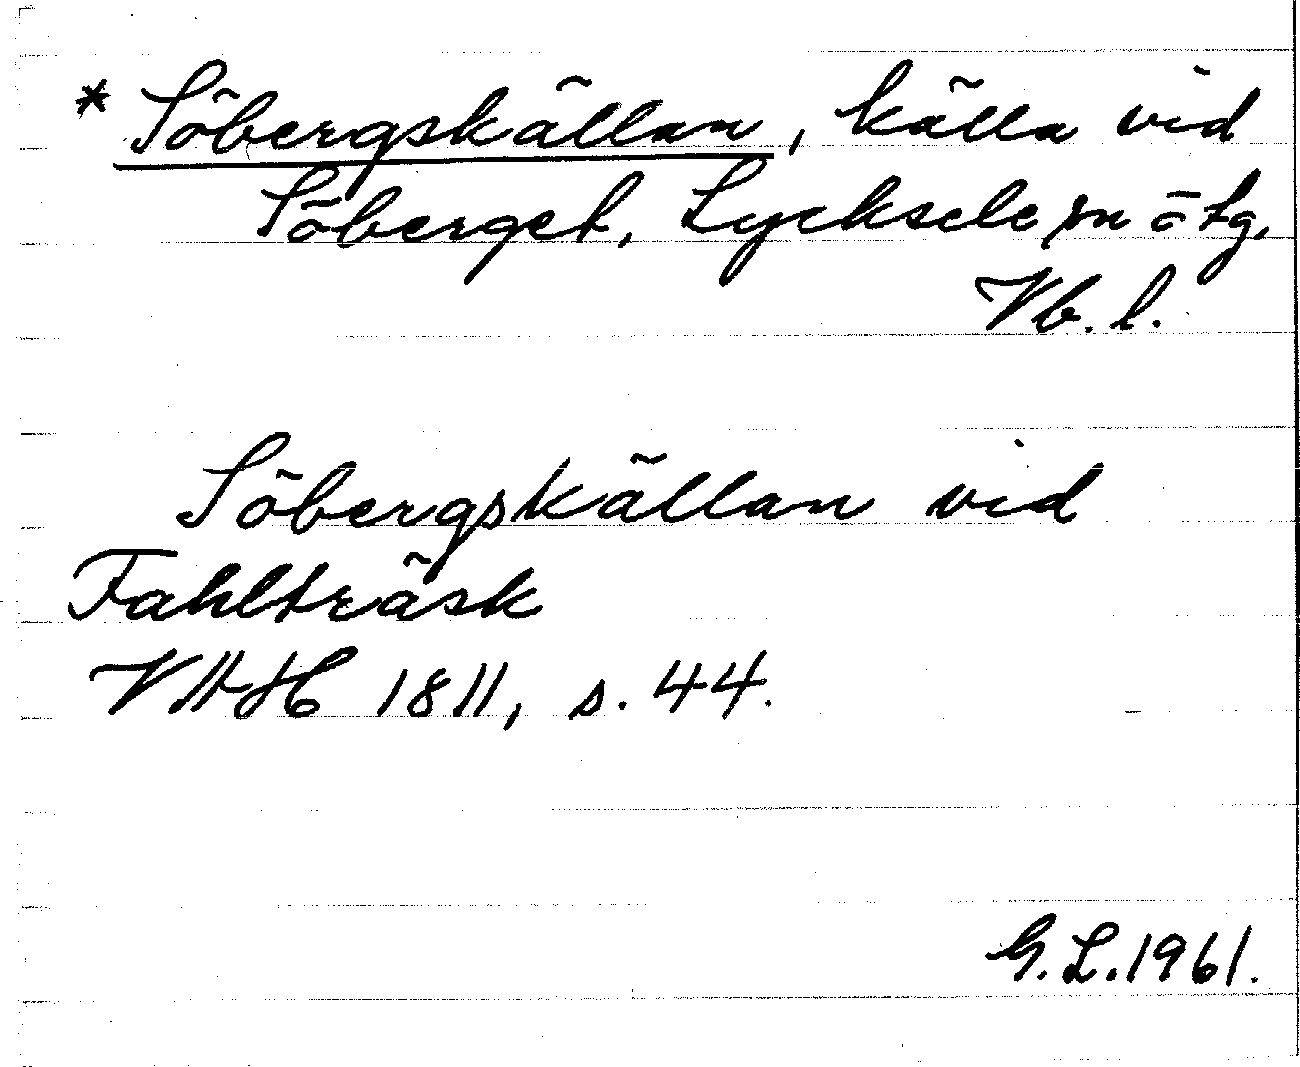 * Söbergskällan, källa vid
Söberget, Lycksele sn ö tg.
Vb. l.
Söbergskällan vid
Fahlträsk
VHH 1811, s. 44.
G.L. 1961.